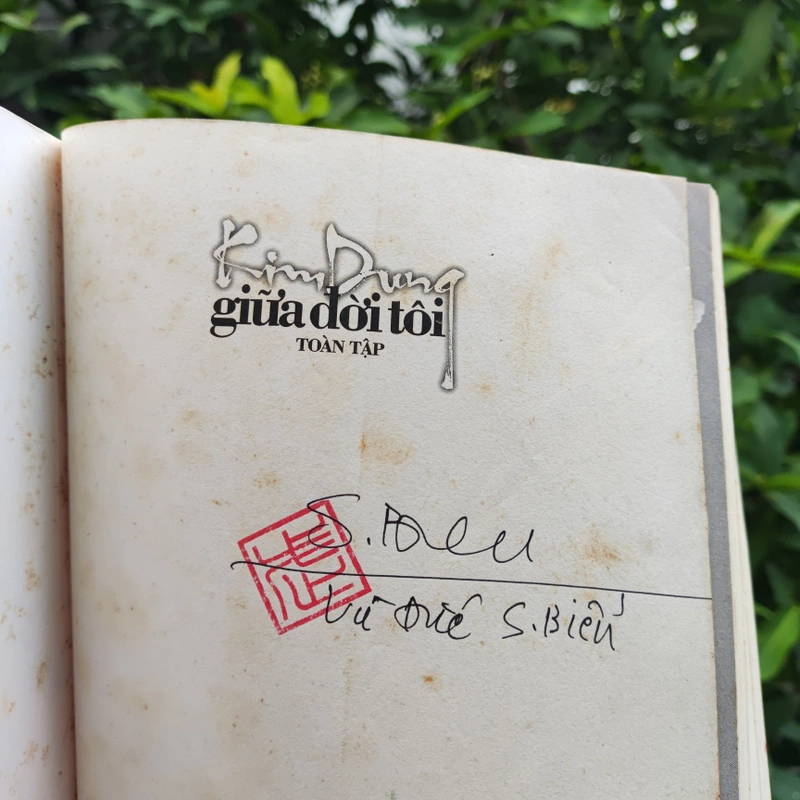 Kim Dung
giữa đời tôi
TOÀN TẬP
Vũ Đức S.Biển